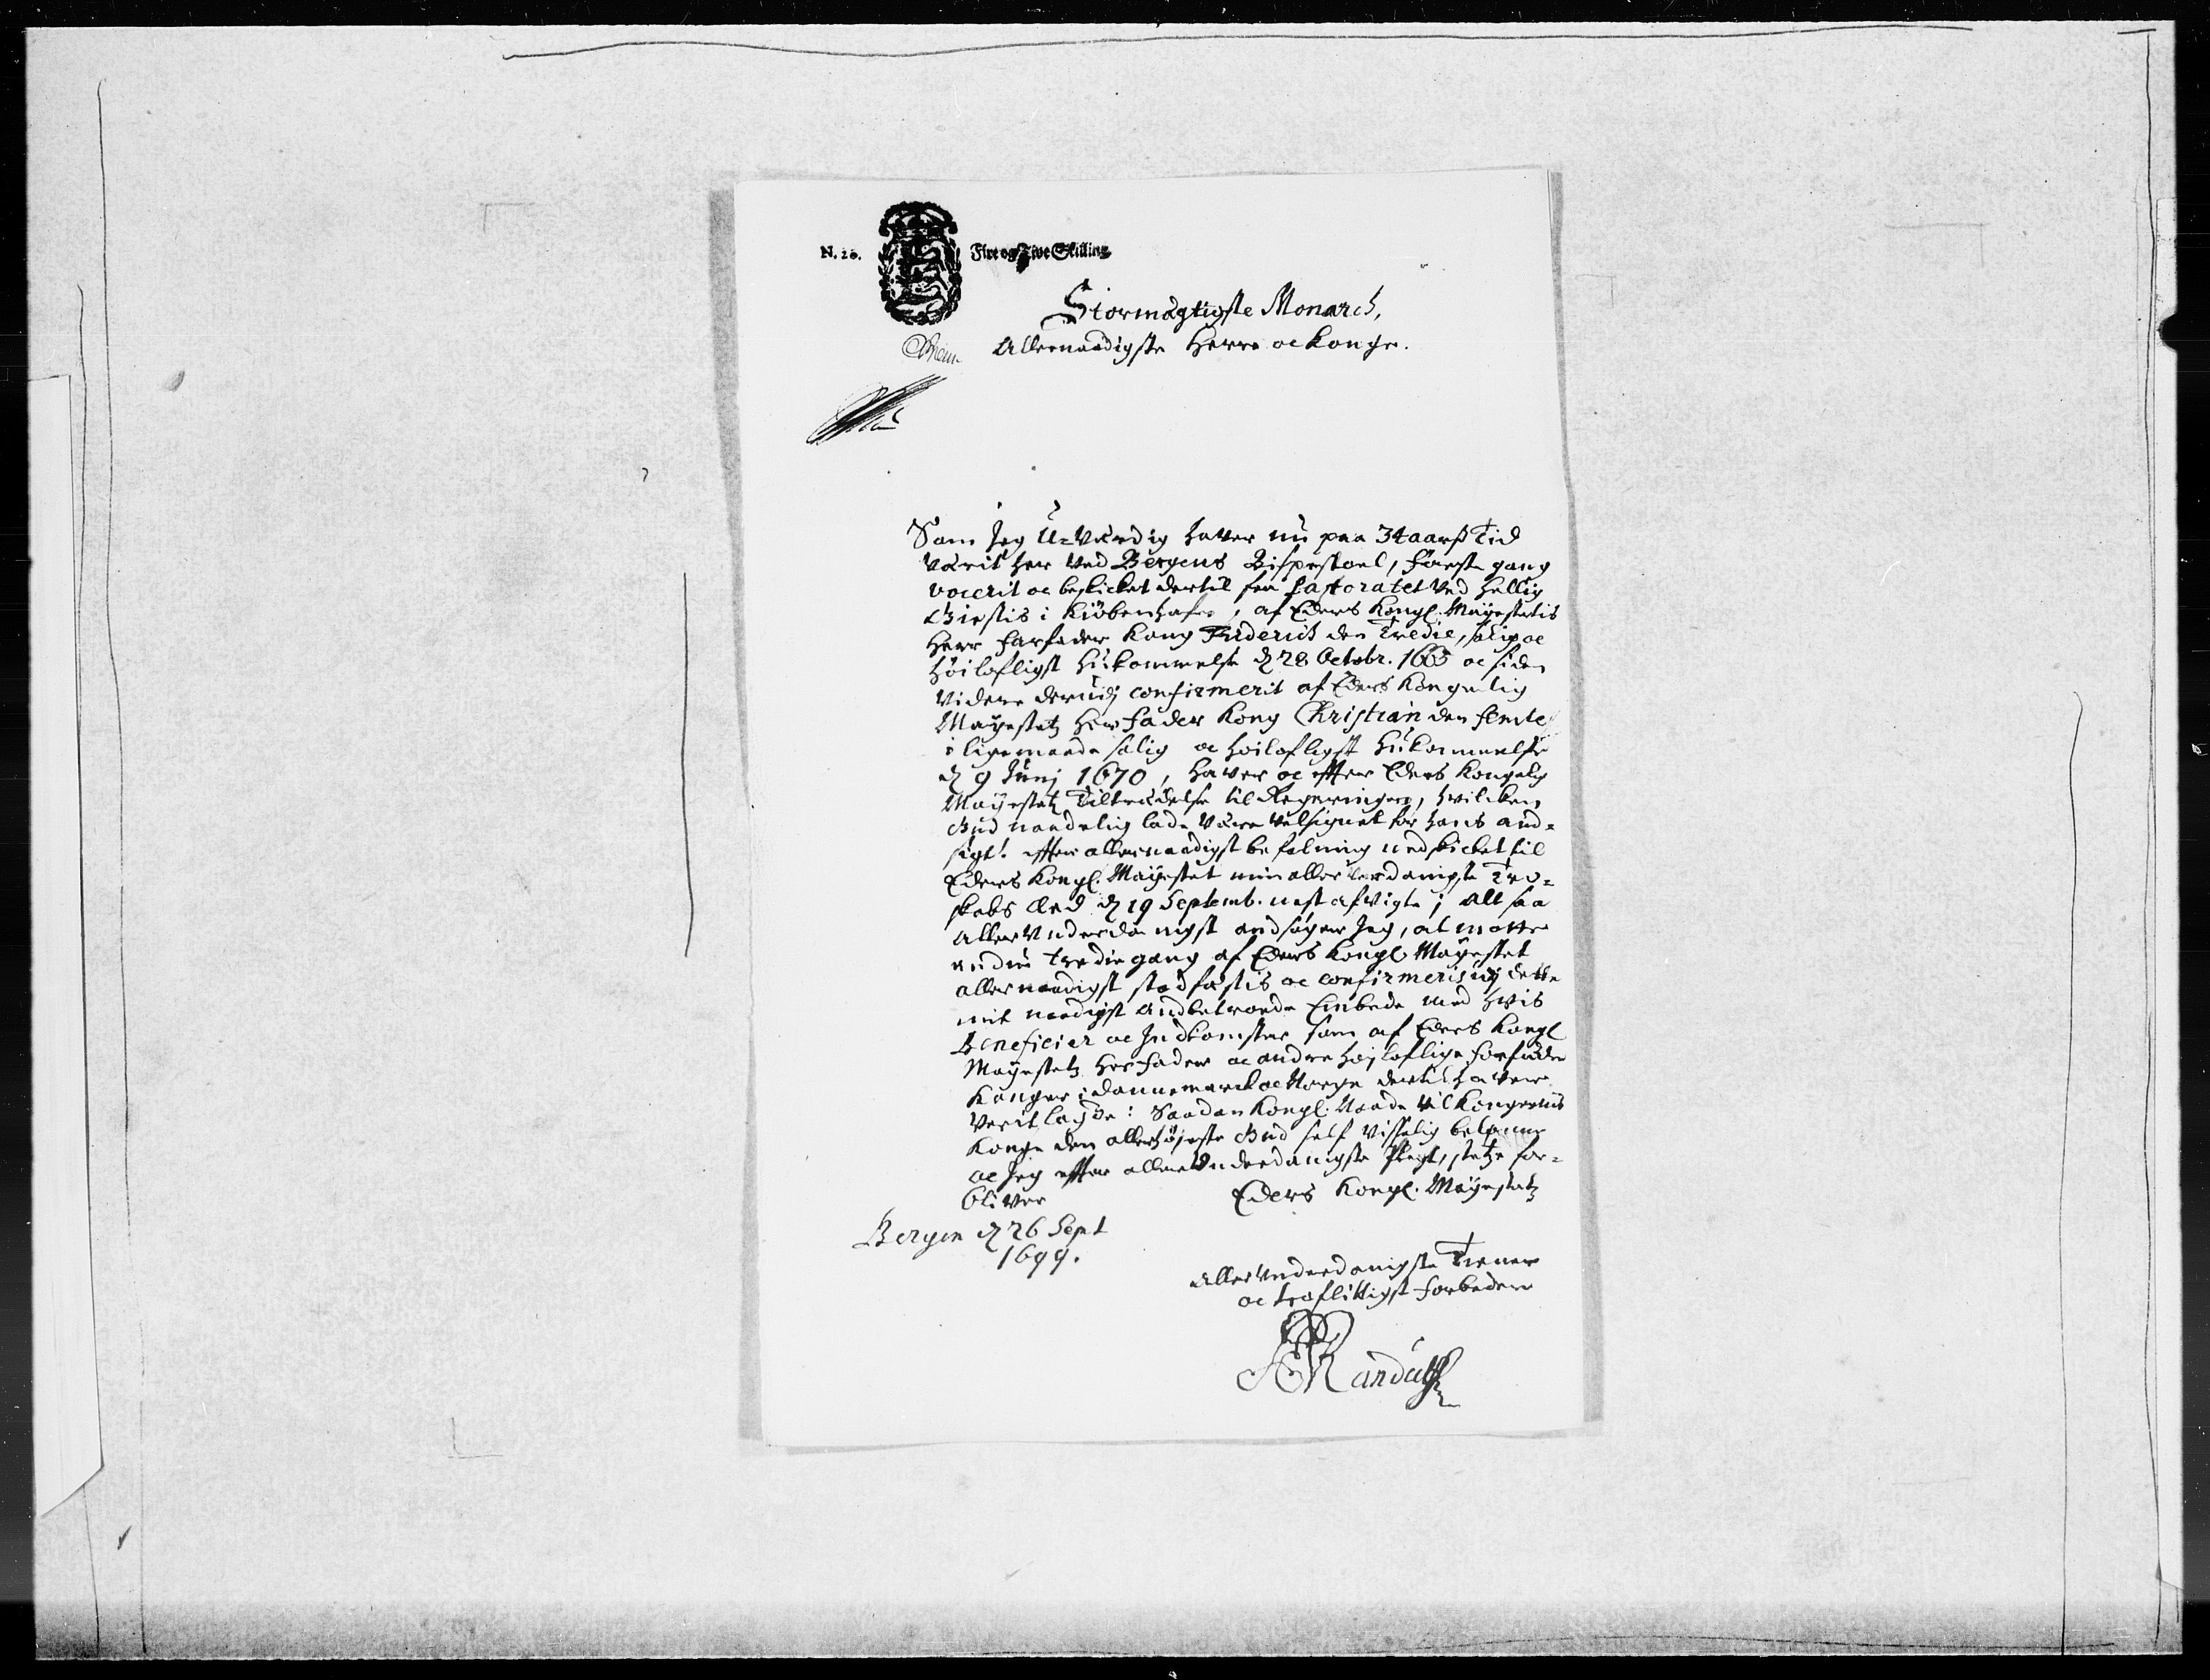 N. 20. Fire og Tive Skilling
Stormägtigste Monarch,
Allernaadigste Herre oc Konge.
Som Jeg U-Værdig haver nu paa 34 aarß Tid
værit her ved Bergens Bispestoel, første gang
vocerit oc beskicket dertil fra Pastoratet ved Hellig
Giestis i Kiøbenhafn, af Eders Kongl. Mayestetis
Herr Farfader Kong Friderich den Tredie, salig oc
Høilofligst Hukommelse d 28 Octobr. 1665 oc siden
videre derudj confirmerit af Eders Kongelig
Mayestetz Herr Fader Kong Christian den femte
i ligemaade salig oc høilofligst Hukommelse
d 9 Junj 1670, haver oc effter Eders Kongelig
Mayestetz Tiltrædelse til Regeringen, hvilcken
Gud naadelig lade være velsignet for hans and-
sigt! effter allernaadigst befalning nedskicket til
Eders Kongl. Mayestet min allerunderdanigste Tro-
skabs Eed d 19 Septemb. nest afvigte; alt saa
allerunderdanigst andsøger Jeg, at motte
endnu tredie gang af Eders Kongl Mayestet
allernaadigst stadfæstis oc confirmeris udj dette
mit naadigst andbetroede Embede med hvis
Beneficier oc Indkomster som af Eders Kongl
Mayestetz Her Fader oc andre højloflige forfædre
Konger i Dannemarck oc Norge dertil haver
verit lagde: Saadan Kongl. Naade vil Kongernis
Konge den allerhøjeste Gud self visselig belønne
oc Jeg effter allerunderdanigste Pligt, stetze for-
bliver
Eders Kongl. Mayestetz
Bergen d 26 Sept
1699.
allerunderdanigste Tiener
oc troflittigst forbedere
Randulff